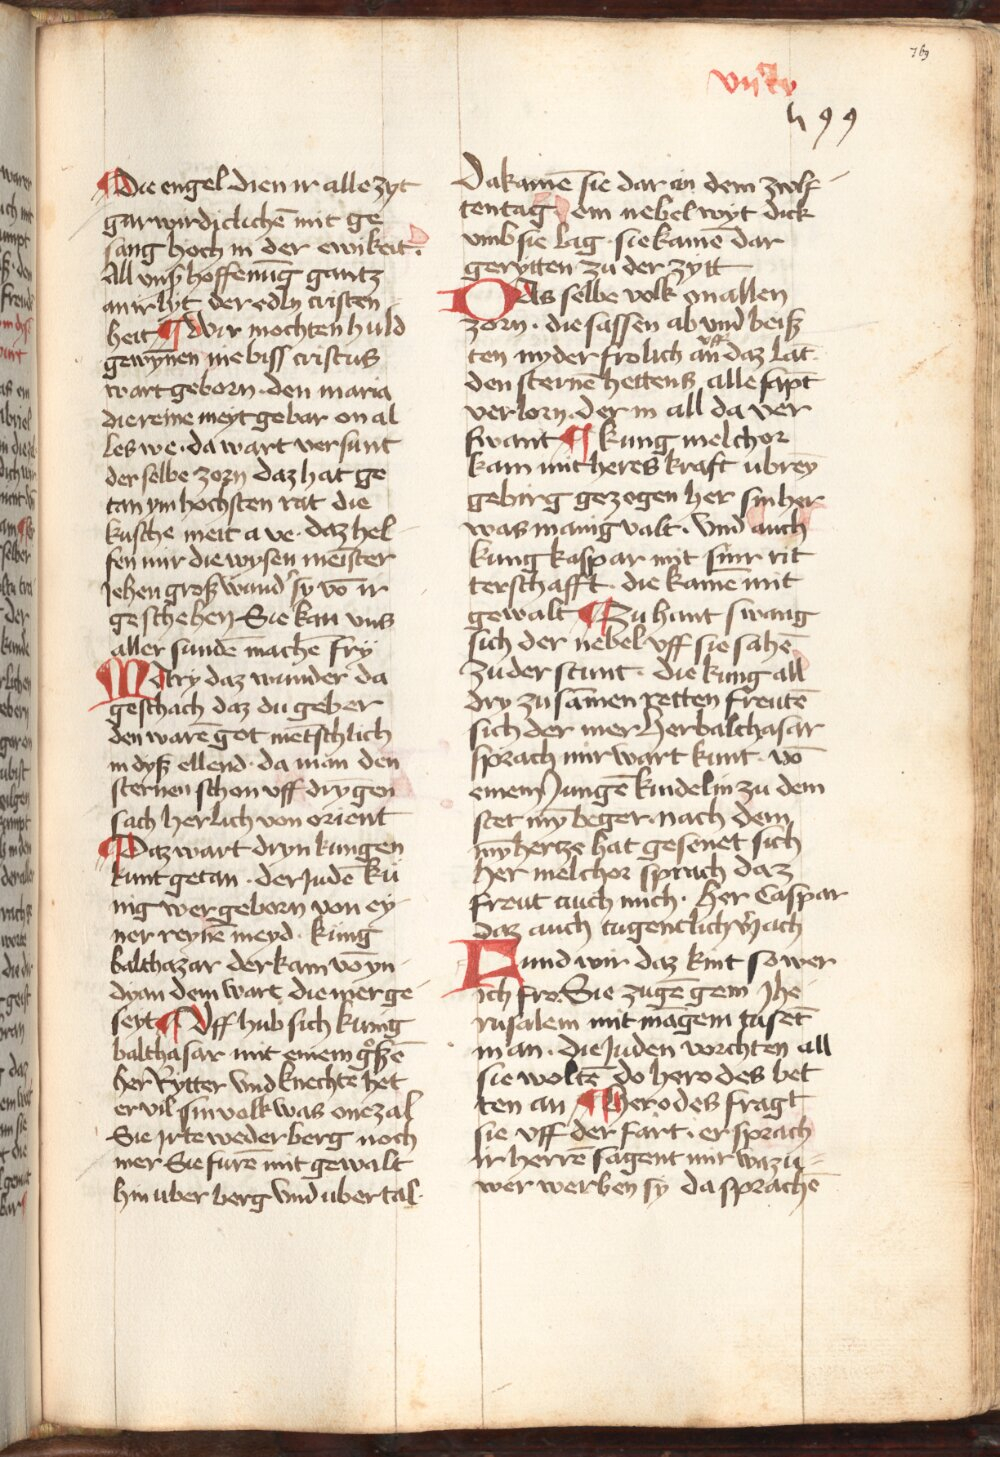 769
h 99
Die engel dien ir alle zyt
gar wirdiclichē mit ge
sang hoch in der ewikeit.
All vnsr hoffenūg gantz
an ir lyt der edln cristen
heit ¶ Wir mochten huld
gewȳnen nie biss cristus
wart geborn. den maria
die reine meyt gebar on al
les we. da wart versunt
der selbe zorn daz hat ge
tan ym hochsten rat die
kusche meit ave. daz hel
fen mir die wysen meister
Jehen groß wandˀ sy vō ir
geschehen Sie kan vns
aller sundē machē fry
Mary daz wunder da
geschach daz du geber
den warē got mētschlich
in dyß ellend. da man den
sternen schon vff drȳgen
sach herlich von orient
Daz wart dryn kungen
kunt getan. der Judē kū
nig wer geborn von ey
ner reynē meyd. kūng
balthazar der kam vō yn
dyan dem wart die mer ge
seyt ¶ Vff hub sich kūng
balthasar mit einem gßē
her Rytter vnd knechte het
er vil sin volk was one zal
Sie Irte weder berg noch
mer Sie furē mit gewalt
hin uber berg vnd uber tal.
Da kamē sie dar an dem zwlf
tentag. ein nebel wyt dick
vmb sie lag. sie kamē dar
gerytten zu der zytt
Das selbe volk on allen
zorn. die sassen ab vnd beiß
ten nyder frolich vff an daz lāt
den sternē hettens alle sāpt
verlorn. der in all da ver
swant ¶ kung melchor
kam mit heres kraft ubrey
gebirg gezogen her sin her
was manig valt. vnd auch
kung kaspar mit sinr rit
terschafft. die kamē mit
gewalt ¶ Zu hant swang
sich der nebel vff sie sahē
zu der stunt. die kung all
dry zu sāmen retten freutē
sich der mer Her balthasar
sprach mir wart kunt. vō
einem Jungē kindelin zu dem
stet mȳ beger. nach dem
mȳ hertze hat gesenet sich
her melchor sprach daz
freut auch mich. her Caspar
daz auch tugentlich v̄iach
Fund wir daz kint so wer
ich fro. Sie zugē gem Jhe
rusalem mit māgem tusēt
man. die Juden vorchten all
sie woltē do herodes bet
ten an ¶ Herodes fragt
sie vff der fart. er sprach
ir herrē sagent mir wa zu
wer werben sy da sprachē